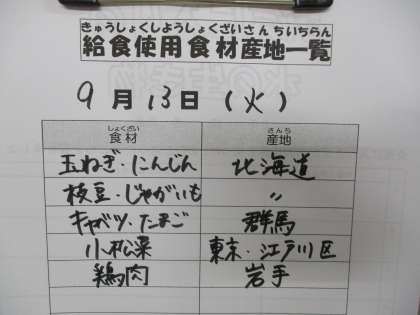 きゅうしょくしようしょくざいさんちいちらん
給食使用食材産地一覧
9月13日(火)
しょくざい さんち
食材 産地
玉ねぎ・にんじん 北海道
枝豆・じゃがいも 〃
キャベツ・たまご 群馬
小松菜 東京・江戸川区
鶏肉 岩手